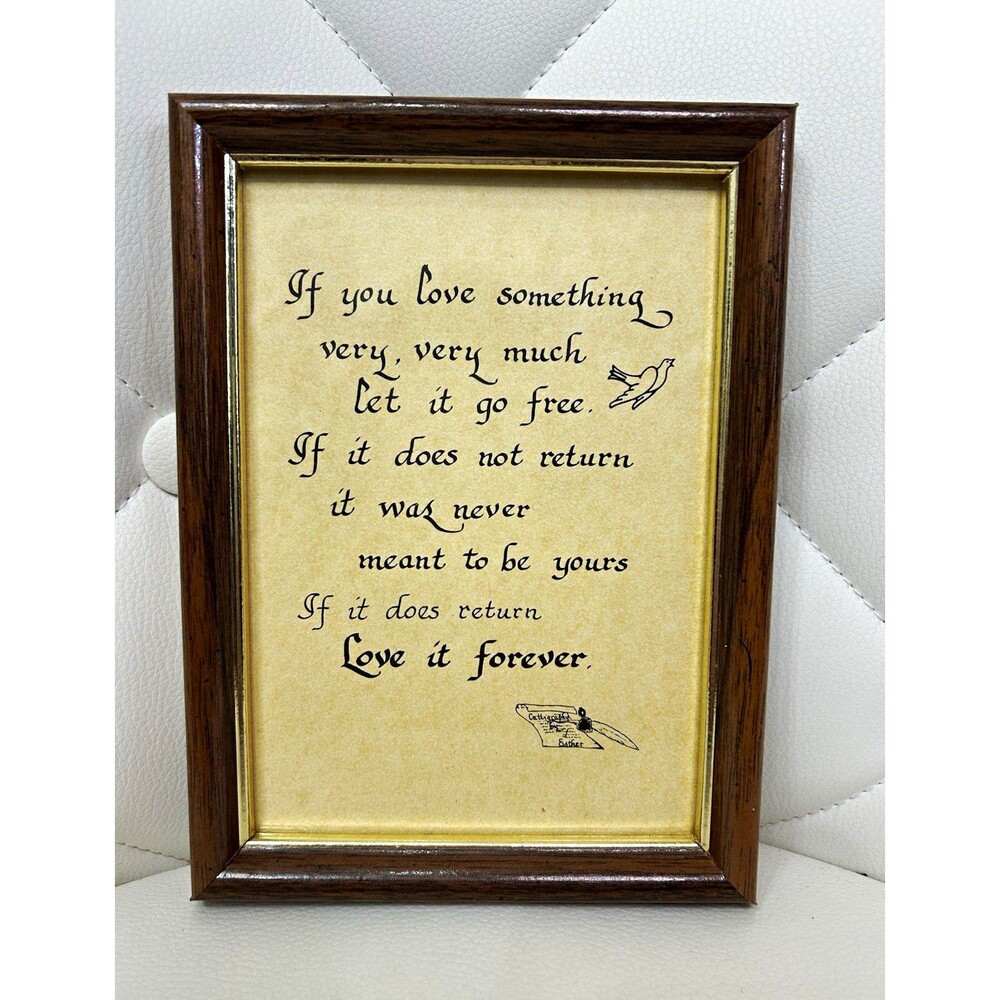 If you love something
very, very much
let it go free.
If it does not return
it was never
meant to be yours
If it does return
Love it forever.
Calligraphy
by
Esther